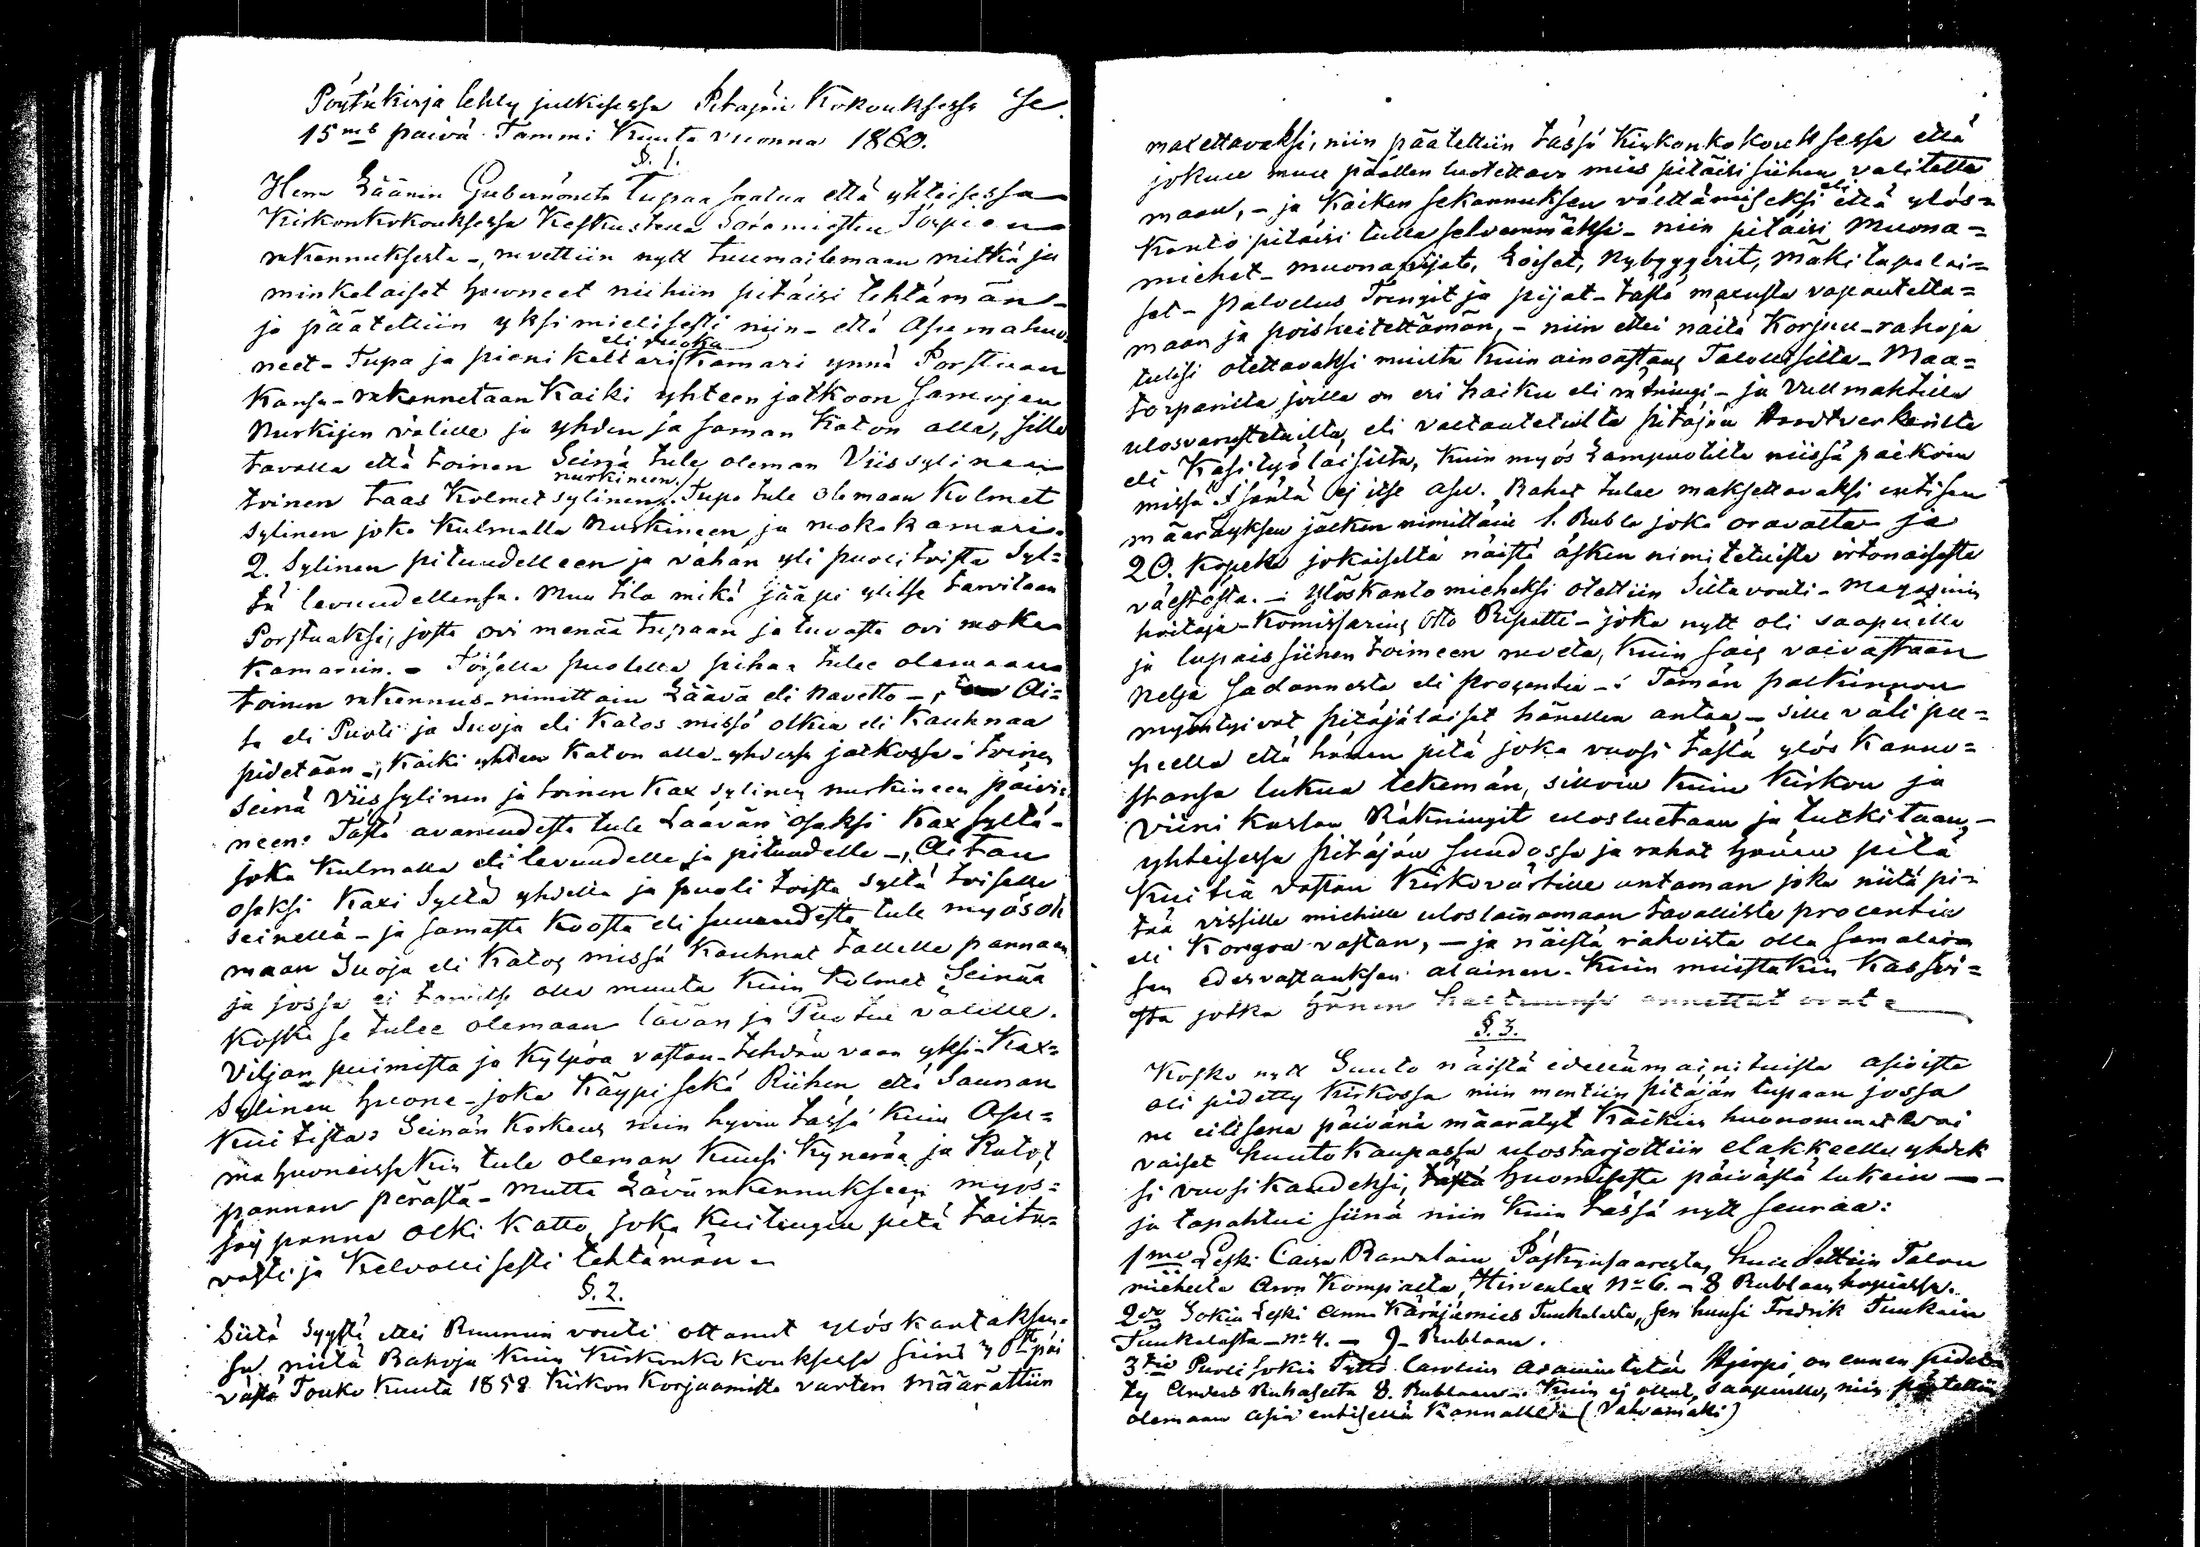 Pöytäkirja tehty julkisessa Pitäjän Kokouksessa se
15ns päivä Tammi Kuuta vuonna 1860.
§. 1.
Herra Läänin Gubernöriltä lupaa saatua että yhteisessä
Kirkonkokouksessa Keskustella Torpien
rakennuksesta -, ruvettiin nytt tuumailemaan mitkä ja
minkalaiset huoneet niihiin pitäisi tehtämän -
ja päätettiin yksimielisesti niin - että Asumahuo-
neet - Tupa ja pieni kelttari Kamari ynnä Porstuan
eli ruoka
Kansa - rakennetaan Kaiki yhteen jatkoon samojen
Nurkijen välille ja yhden ja saman Katon alla, sillä
tavalla että toinen Seinä tule oleman Viis sylinen
toinen taas Kolmet sylinen nurkineen. Tupa tule olemaan Kolmet
sylinen joka Kulmalla Nurkineen ja ruokakamari
2. Sylinen pituudelleen ja vähän yli puolitoista Syl=
tä levuudellensa. Muu tila mikä jääpi ylitse tarvitaan
Porstuaksi, josta ovi menää tupaan ja tuvasta ovi ruoka
Kamariin. - Toisella puolella pihaa tulee olemaan
toinen rakennus - nimittäin Läävä eli Navetto -, Ai=
ta eli Puoti ja Suoja eli Katos missä olkia eli Kauhnaa
pidetään -, Kaiki yhden Katon alla yhdessä jatkossa - toinen
Seinä Viis sylinen ja toinen Kax sylinen nurkineen päivi=
neen: Tästä avaruudesta tule Läävän osaksi Kax syltä -
joka Kulmalla eli levuudelle ja pituudelle -, Aitan
osaksi Kaxi Syltä yhdellä ja puoli toista syltä toisella
seinellä - ja samasta Koosta eli suuruudesta tule myös ole
maan Suoja eli Katos missä Kauhnat tallelle pannaan
ja jossa ei tarvitse olla muuta Kuin Kolmet Seinää
Koska se tulee olemaan lävän ja Puotin välille.
Viljan puimista ja Kylpöä vastan - tehdän vaan yksi - Kax=
Sylinen huone - joka Käypi sekä Riihen että Saunan
Kuitista: Seinän Korkeus niin hyvin tässä kuin Asu=
ma huoneissakin tule oleman Kuusi Kynerää ja Katot
pannan perästä - Mutta Lävänrakennukseen myös=
saij panna olki katto, joka Kuitengin pitä taita=
vasti ja Kelvollisesti tehtämän.
§. 2.
Siitä Syystä ettei Ruunun vouti ottanut ylöskantaksen=
sa niitä Rahoja Kuin Kirkonkokouksessa siinä 30stä päi
västä Touko Kuuta 1858 Kirkon Korjaamista varten määrättiin
maxettavaksi, niin päätettiin tässä Kirkonkokouksessa että
jokuu muu päällen luotettava mies pitäisi siihen valitetta
maan, - ja Kaiken sekannuksen välttämiseksi eli että ylös=
Kanto pitäisi tulla selvemmäksi - niin pitäisi Muona=
miehet - muonapijat, Loiset, Nybyggerit, Mäkitupalai=
set - palvelus Trengit ja pijat - tästä maxusta vapautetta=
maan ja poisheitettämän, - niin ettei näitä Korjuu-rahoja
tulisi otettavaksi muilta Kuin ainoastans Talollisilta - Maa=
torparilta joilla on eri haiku eli rätningi - ja Vallmahtilla
ulosvarustetuilta, eli valtautetuilta pitäjän Handtverkarilta
eli Käsityöläisiltä, Kuin myös Lampuotilta niissä paikoin
missä Isäntä ej itse asu. Rahat tulee maksettavaksi entisen
määräyksen jälken nimittäin 1. Rubla joka oravalta ja
20. Kopeka jokaiselta näistä äsken nimitetuista irtonaisesta
väestösta. - Ylöskantomieheksi otettiin Siltavouti - Magasinin
hoitaja - Komissarius Otto Ripatti - joka nytt oli saapuilla
ja lupais siihen toimeen ruveta, Kuin sais vaivastaan
Neljä sadannesta eli procentia -: Tämän palkinnon
myöntyivät pitäjäläiset hänellen antaa, - sille väli pu=
heella että hänen pitä joka vuosi tästä ylös Kanno=
stansa lukua tekemän, silloin Kuin Kirkon ja
Viini Kassan Räkningit ulosluetaan ja tutkitaan, -
yhteisessä pitäjän suudossa ja rahat hänen pitä
Kuitia vastan Kirkovärtille antaman joka niitä pi=
tää vissille miehille uloslainamaan tavallista procentia
eli Korgoa vastan, - ja näistä rahoista olla samalaisen
sen edesvastauksen alainen. Kuin muistakin Kassoi=
sta jotka hänen haltuunsa annettut ovat.
§. 3.
Koska nytt Suuto näistä edellämainituista asioista
oli pidetty Kirkossa niin mentiin pitäjän tupaan jossa
ne eilisenä päivänä määrätyt Kaikin huonommat vai
vaiset huutokaupassa ulostarjottiin elakkeelle yhdek
si vuosikaudeksi, huomisesta päivästä lukein -
ja tapahtui siinä niin Kuin tässä nytt seuraa:
1mo Leski Caisa Pasksinsaaresta, huudettiin Talon
mieheltä Aron Kompialta, Hirvenlax No 6. - 8 Rublaan hopiassa.
2do Sokia Leski Anna Käräjämies Tuukalasta, sen huusi Fredrik Tuukain
Tuukalasta - No 4. - 9 - Rublaan.
3tio Puolisokia Tyttö Carolina Asamintytär Hjerpi, on ennen pidet
ty Anders Ruhaselta 8. Rublaan. Kuin ej ollut saapuilla, niin päätettiin
olemaan asia entisellä Kannallan (Vahvamäki)